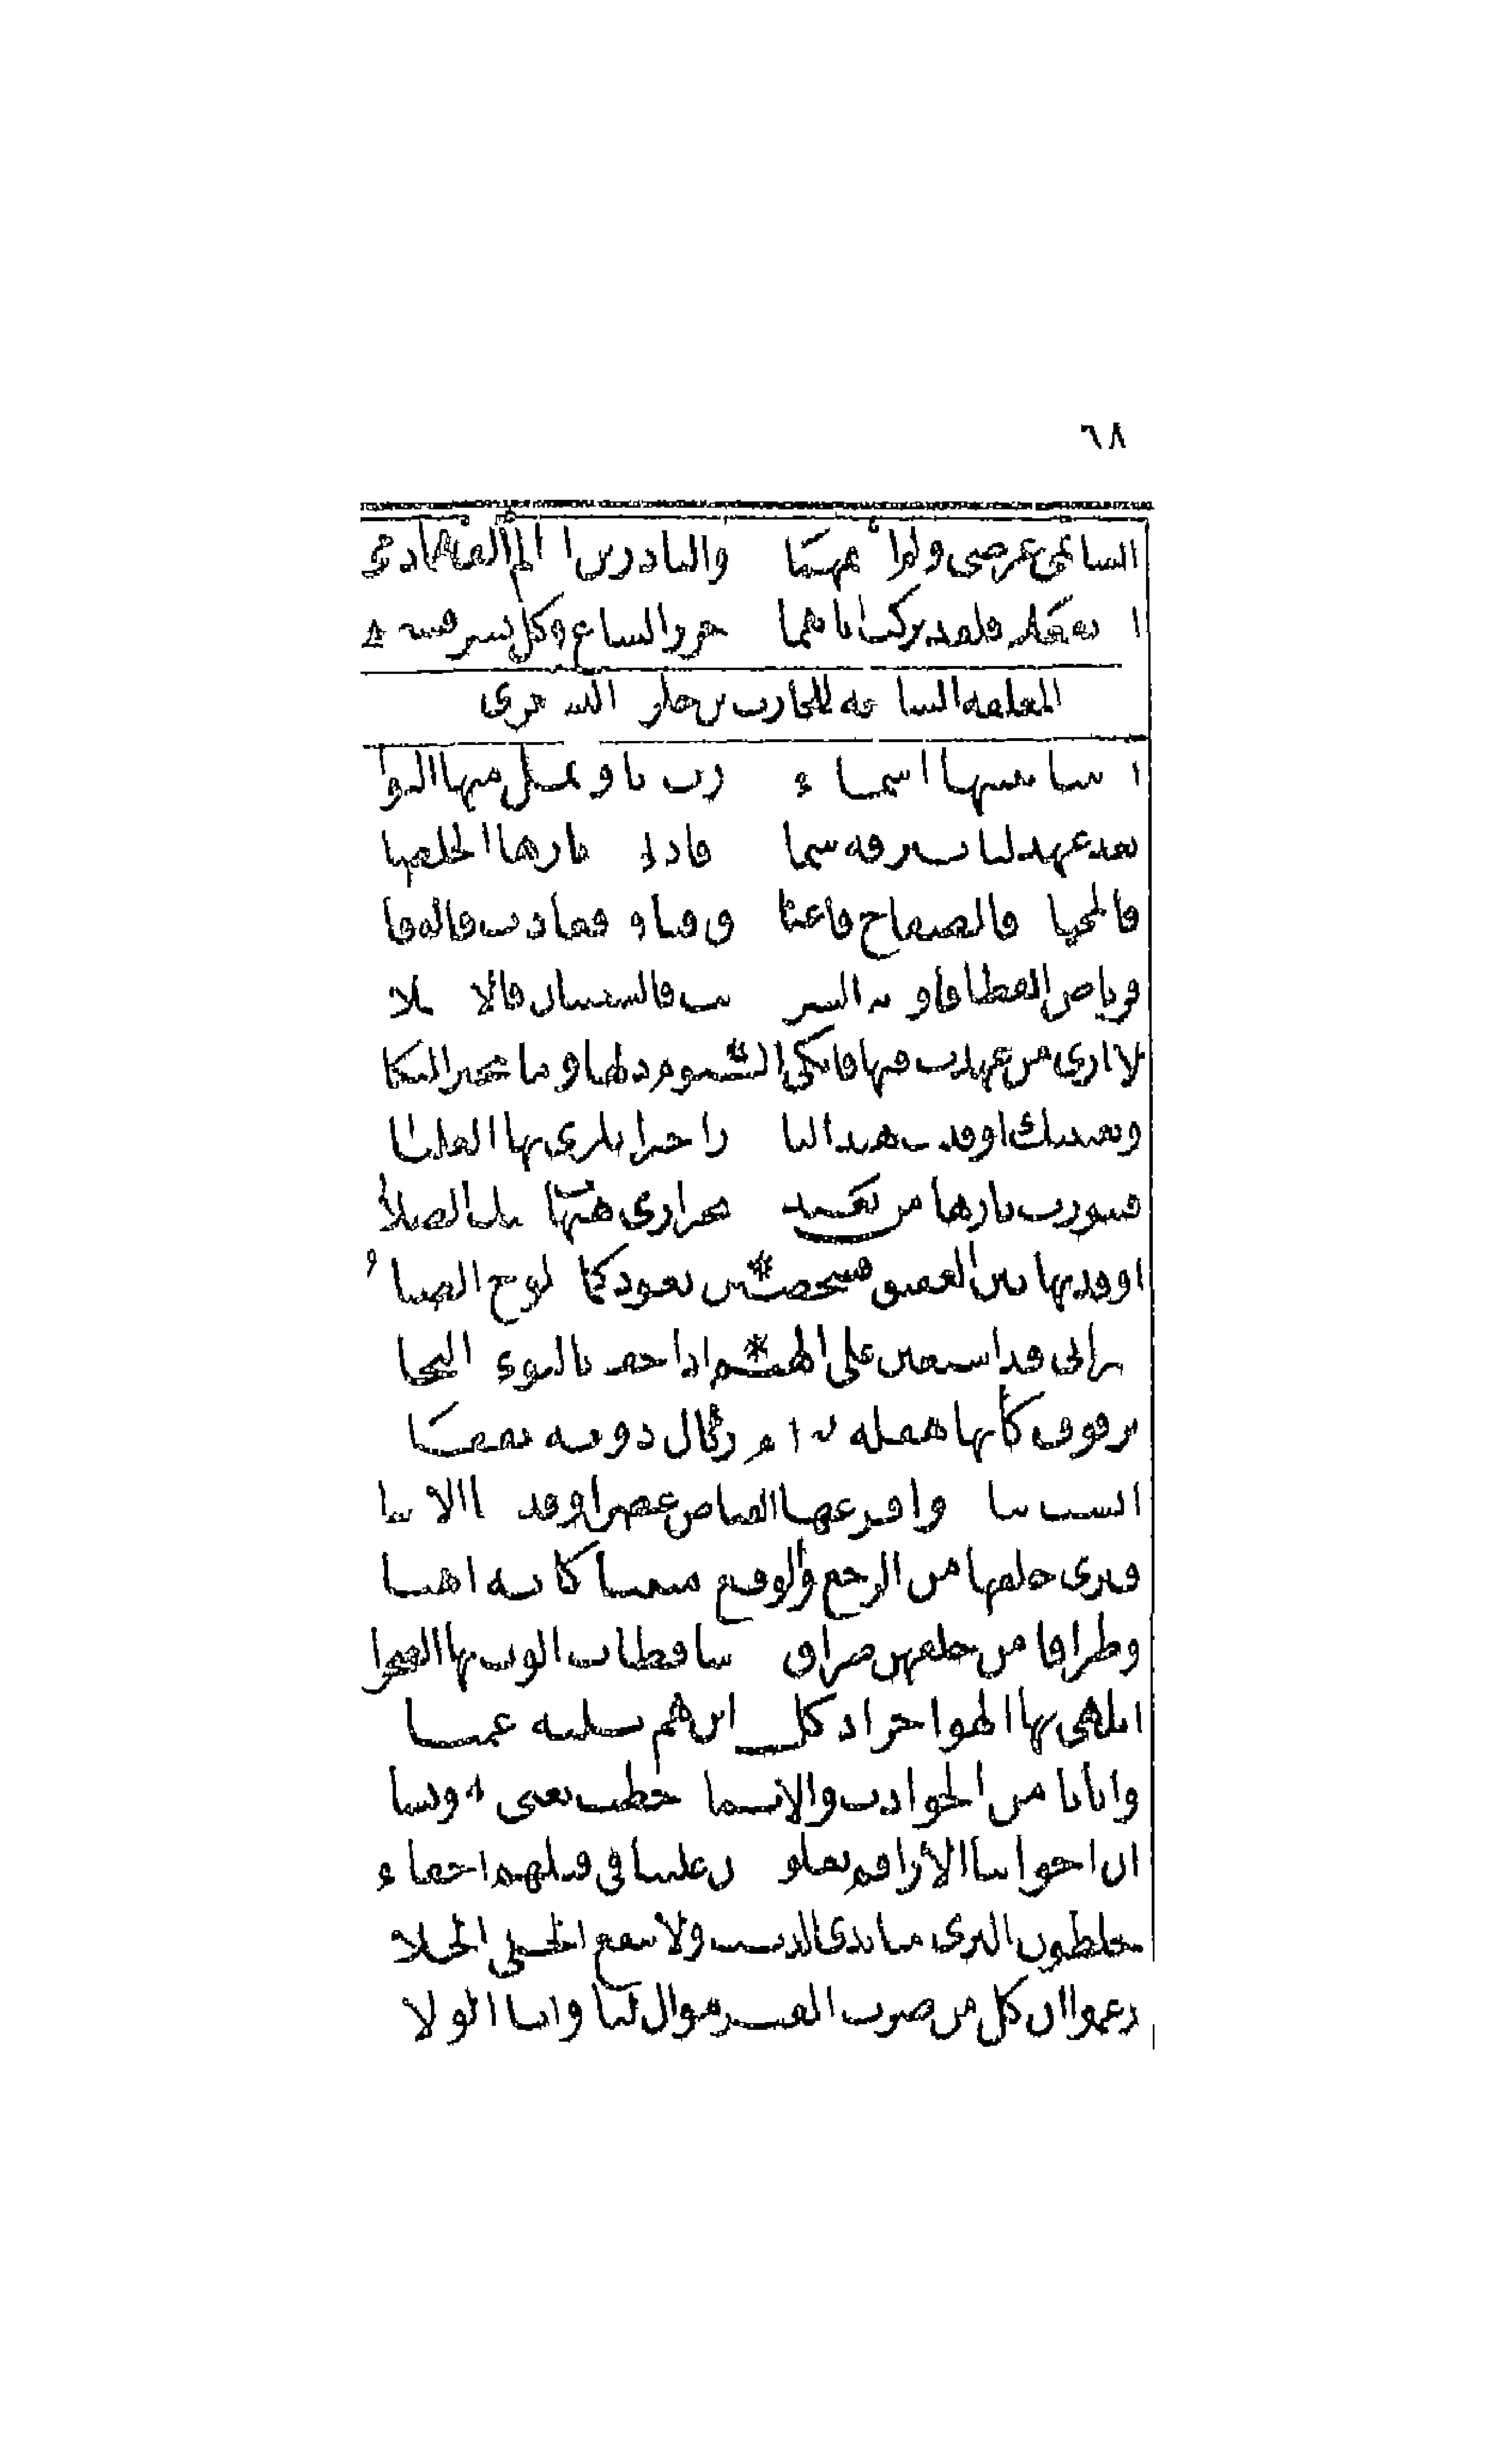 ٦٨
الشاتمي عرضي ولم أشتمهما والناذرين اذا لم القهما دمي
ان يفعلا فلقد تركت اباهما جزر السباع وكل نسر قشعم
المعلقة السابعة للحارث بن حلزة اليشكري
اذنتنا ببينها اسماء رب ثاو يمل منها الثوا
بعد عهد لنا ببرقة شما فادنى ديارها الخلصا
فالمحيا فالصفاح فاعنا ق فتاق فعاذب فالوفا
فرياض القطا فاودية الشر بب فالشعبتان فالابلا
لا ارى من عهدت فيها فابكي اليوم دلها وما يحير البكا
وبعينيك اوقدت هند النا را اخيرا تلوي بها العليا
فتنورت نارها من بعيد بخزازى هيهات منك الصلا
اوقدتها بين العقيق فشخصين بعود كما يلوح الضيا
غير اني قد استعين على الهم اذا خف بالثوي النجا
بزفوف كأنها هقلة ام رئال دوية سقفا
آنست نبأة وافزعها القناص عصرا وقد دنا الامسا
فترى خلفها من الرجع والوقع منينا كانه اهبا
وطراقا من خلفهن طراق ساقطات الوت بها الصحرا
اتلهى بها الهواجر اذ كل ابن هم بلية عميا
واتانا من الحوادث والانبا خطب نعنى به ونسا
ان اخواننا الأراقم يغلو ن علينا في قيلهم احفاء
يخلطون البرى منا بذي الذنب ولا ينفع الخلي الخلا
زعموا ان كل من ضرب العير موال لنا وانا الولا